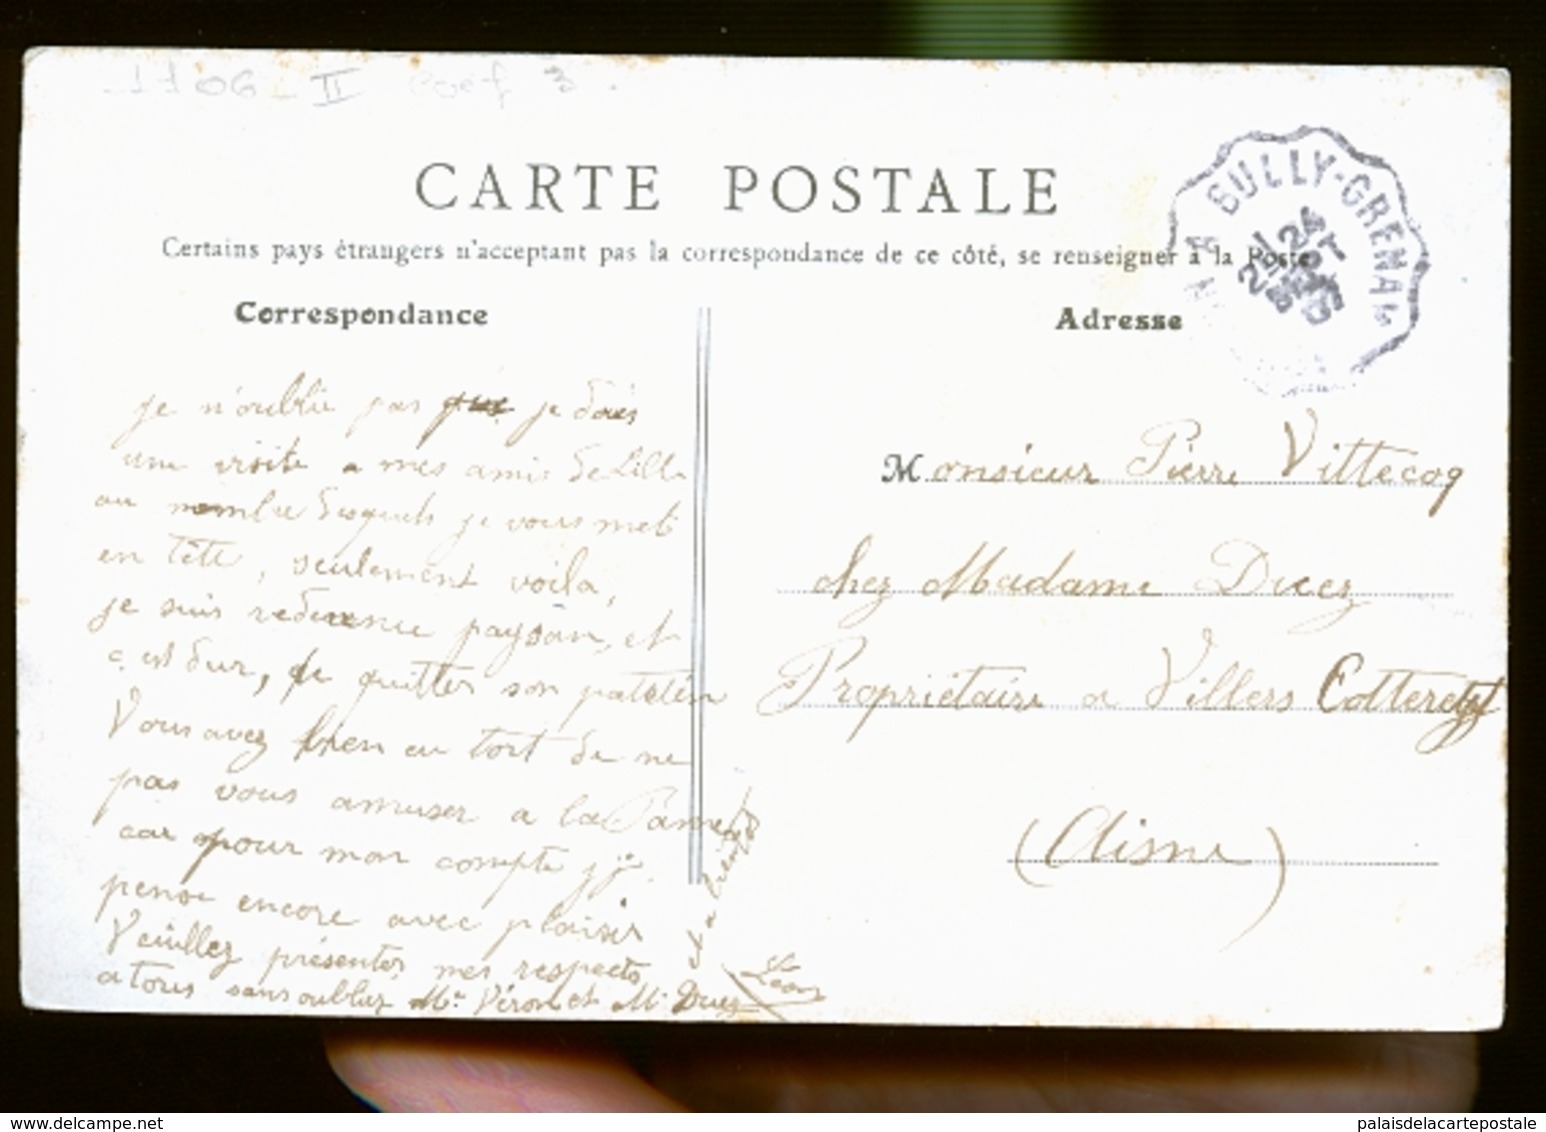 1106 - II Coef 3.
CARTE POSTALE
Certains pays étrangers n'acceptant pas la correspondance de ce côté, se renseigner à la Poste
Correspondance
je n'oublie pas que je dois
une visite a mes amis de Lille
au nombre desquels je vous mets
en tête, seulement voila,
je suis redevenu paysan, et
c'est dur, de quitter son patelin
Vous avez bien eu tort de ne
pas vous amuser a la
car pour mon compte j'y
pense encore avec plaisir
Veuillez présenter mes respects
a tous sans oublier Mr. Véron et M. Druez
Léon
Adresse
BULLY-GRENAY
24
SEPT
Monsieur Pierre Vittecoq
chez Madame Druez
Propriétaire a Villers Cotteretz
(Aisne)
www.delcampe.net
palaisdelacartepostale